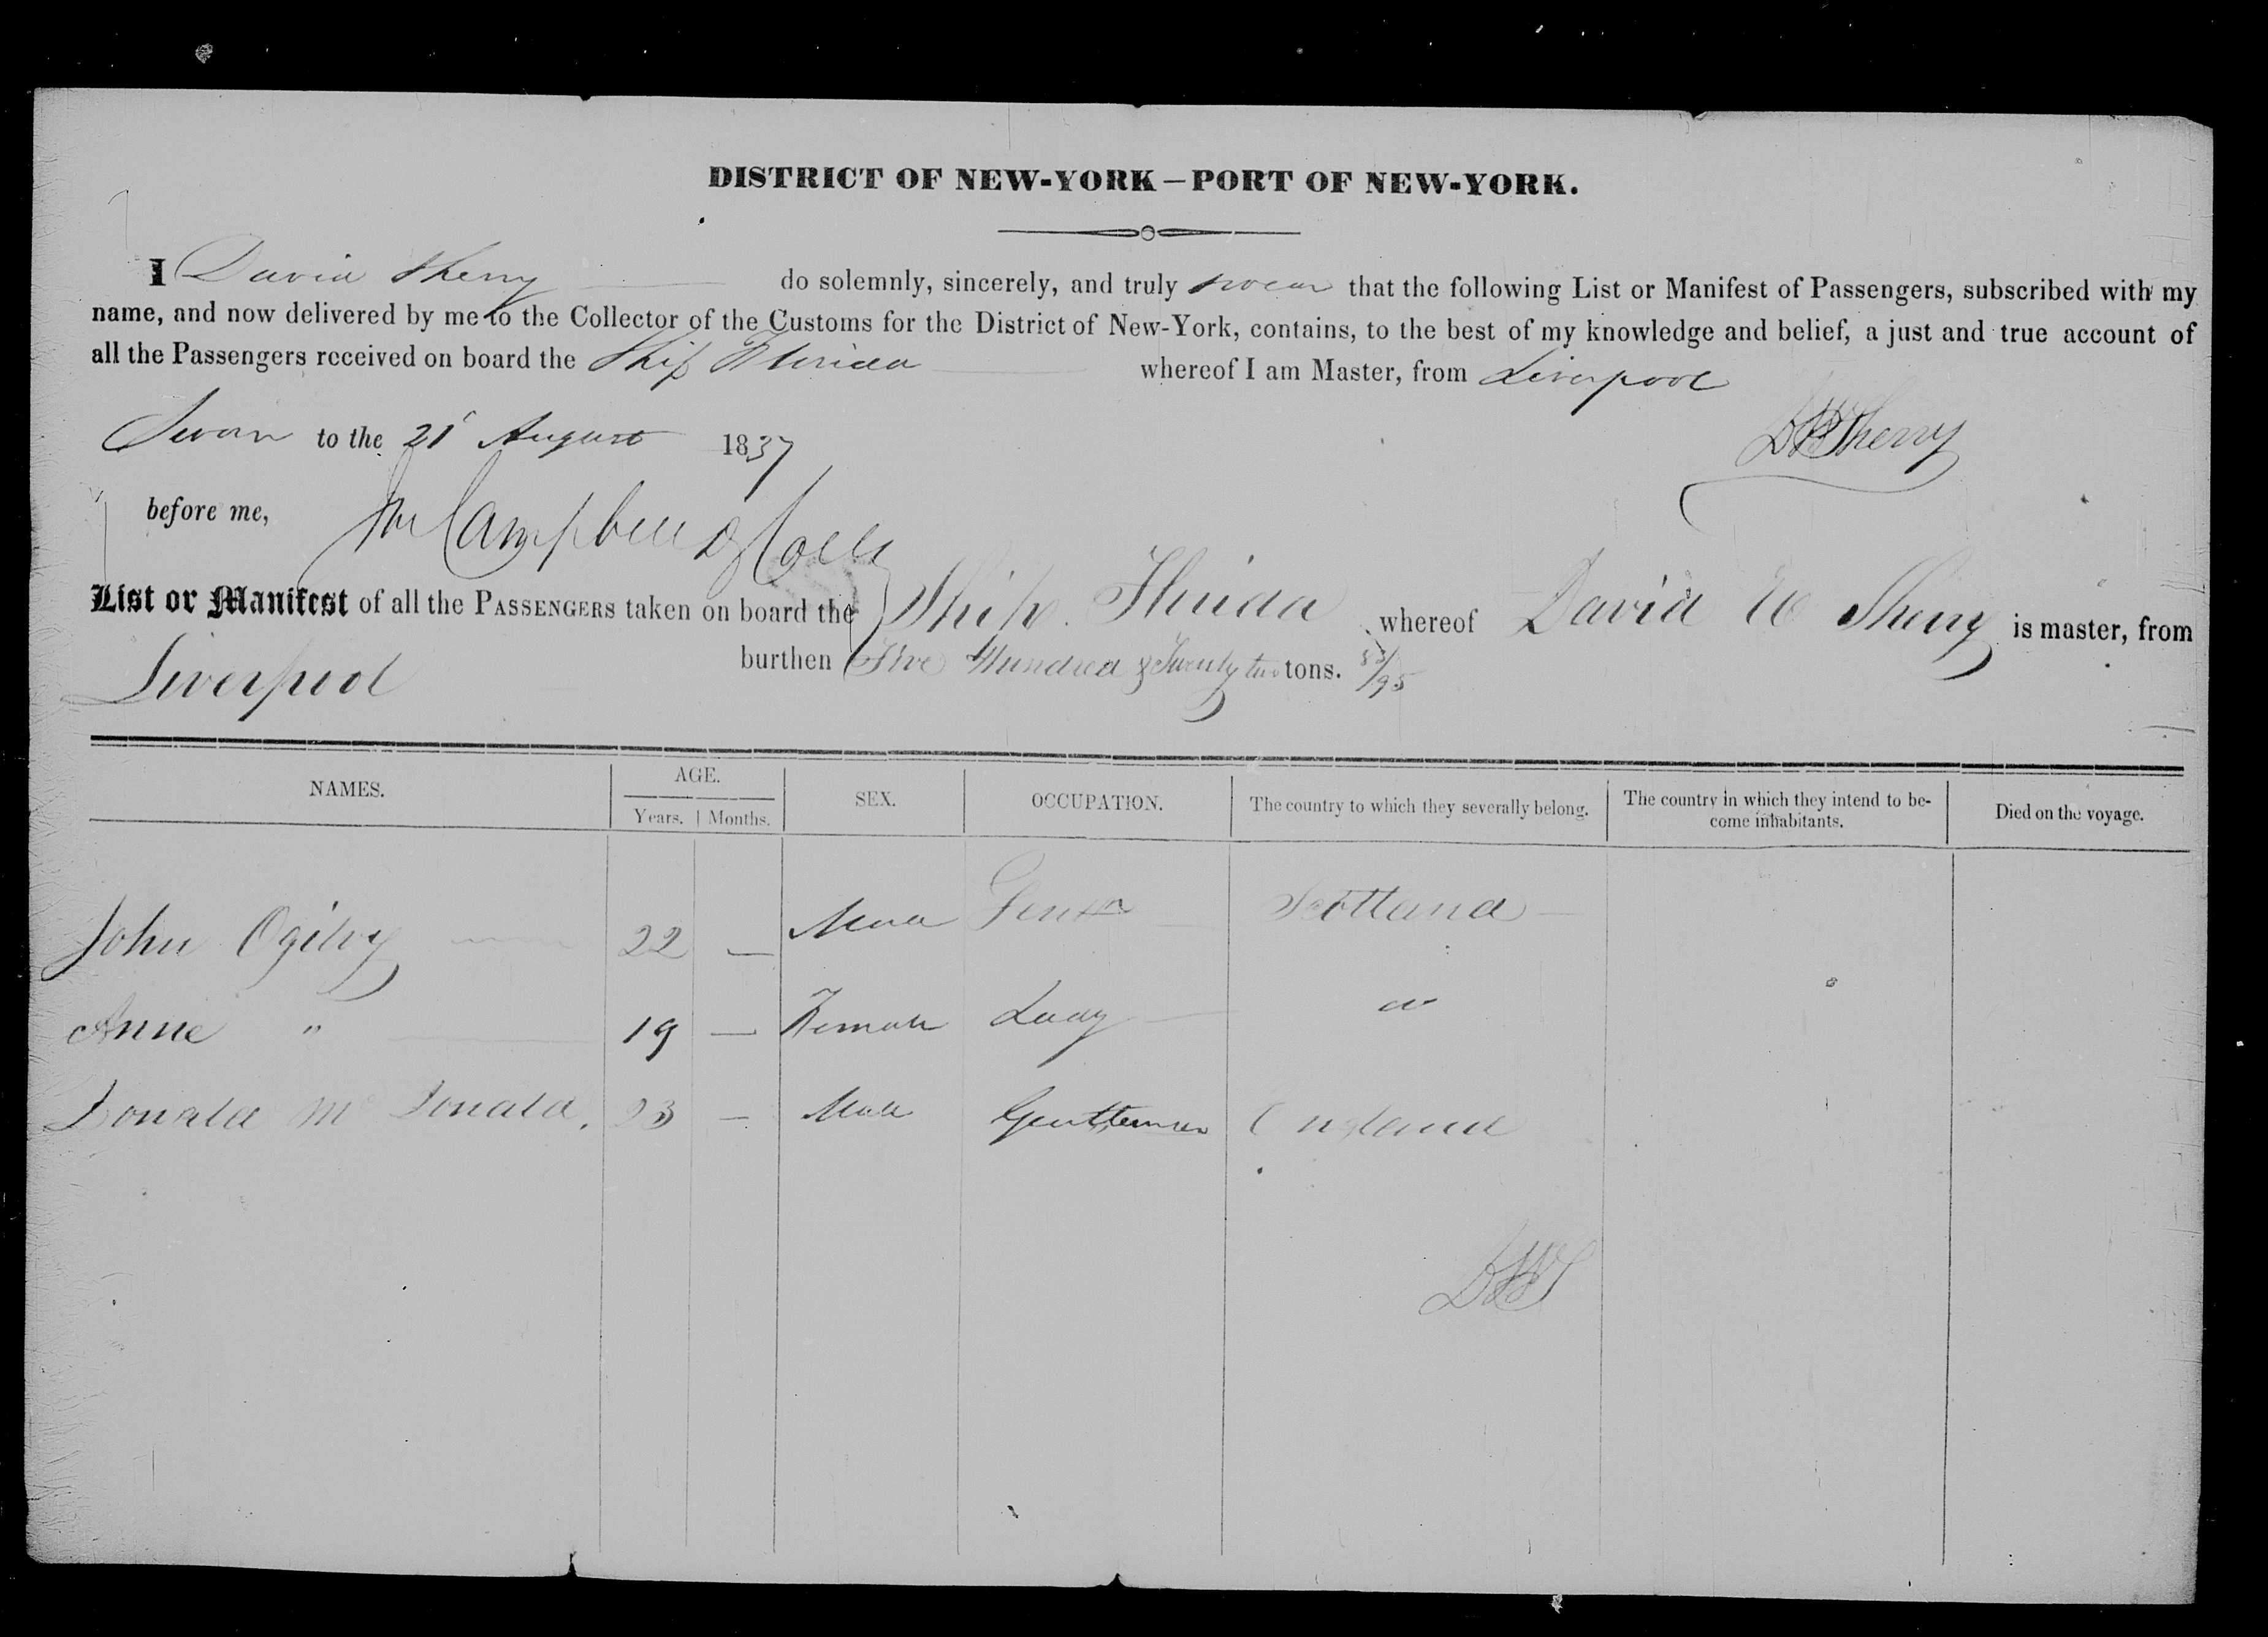 DISTRICT OF NEW-YORK—PORT OF NEW-YORK.
I David Sherry do solemnly, sincerely, and truly swear that the following List or Manifest of Passengers, subscribed with my
name, and now delivered by me to the Collector of the Customs for the District of New-York, contains, to the best of my knowledge and belief, a just and true account of
all the Passengers received on board the Ship Florida whereof I am Master, from Liverpool
Sworn to the 21 August 1837
DWSherry
before me,
Campbell D Coll
List or Manifest of all the PASSENGERS taken on board the Ship Florida whereof David W Sherry is master, from
Liverpool burthen Five Hundred & Twenty two tons. 53/95
NAMES. AGE. SEX. OCCUPATION. The country to which they severally belong. The country in which they intend to be-
come inhabitants. Died on the voyage.
Years. Months.
John Ogilvy 22 — Male Gentn Scotland
Anne " 19 — Female Lady do
Donald Mc Donald. 23 — Male Gentleman England
DWS